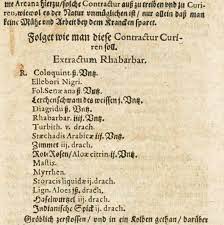 me Arcana hierzu/solche Contractur auß zu treiben vnd zu Curi-
ren, wiewol es der Natur vnmüglichen ist / nur allein daß man
keine Mühe vnd Arbeit bey dem Krancken sparet.
Folget wie man diese Contractur Curi-
ren soll.
Extractum Rhabarbar.
R. Coloquint. ß. Vntz.
Ellebori Nigri.
Fol. Senæ ana ß. Vntz.
Lerchenschwam des weissen j. Vntz.
Diagrid. vj. drach.
Rhabarb. iiij. Vntz.
Turbith. v. drach.
Stœchadis Arab. iij. Vntz.
Zimmet iij. drach.
Rot Rosen / Aloæ citrin. iij. Vntz.
Mastix ß. Vntz.
Myrrhen ß. Vntz.
Storacis liquidæ ij. drach.
Lign. Aloes iß. drach.
Haselwurtzel iij. drach.
Indianische Spick ij. drach.
Gröblich zerstossen / vnd in ein Kolben gethan / darüber